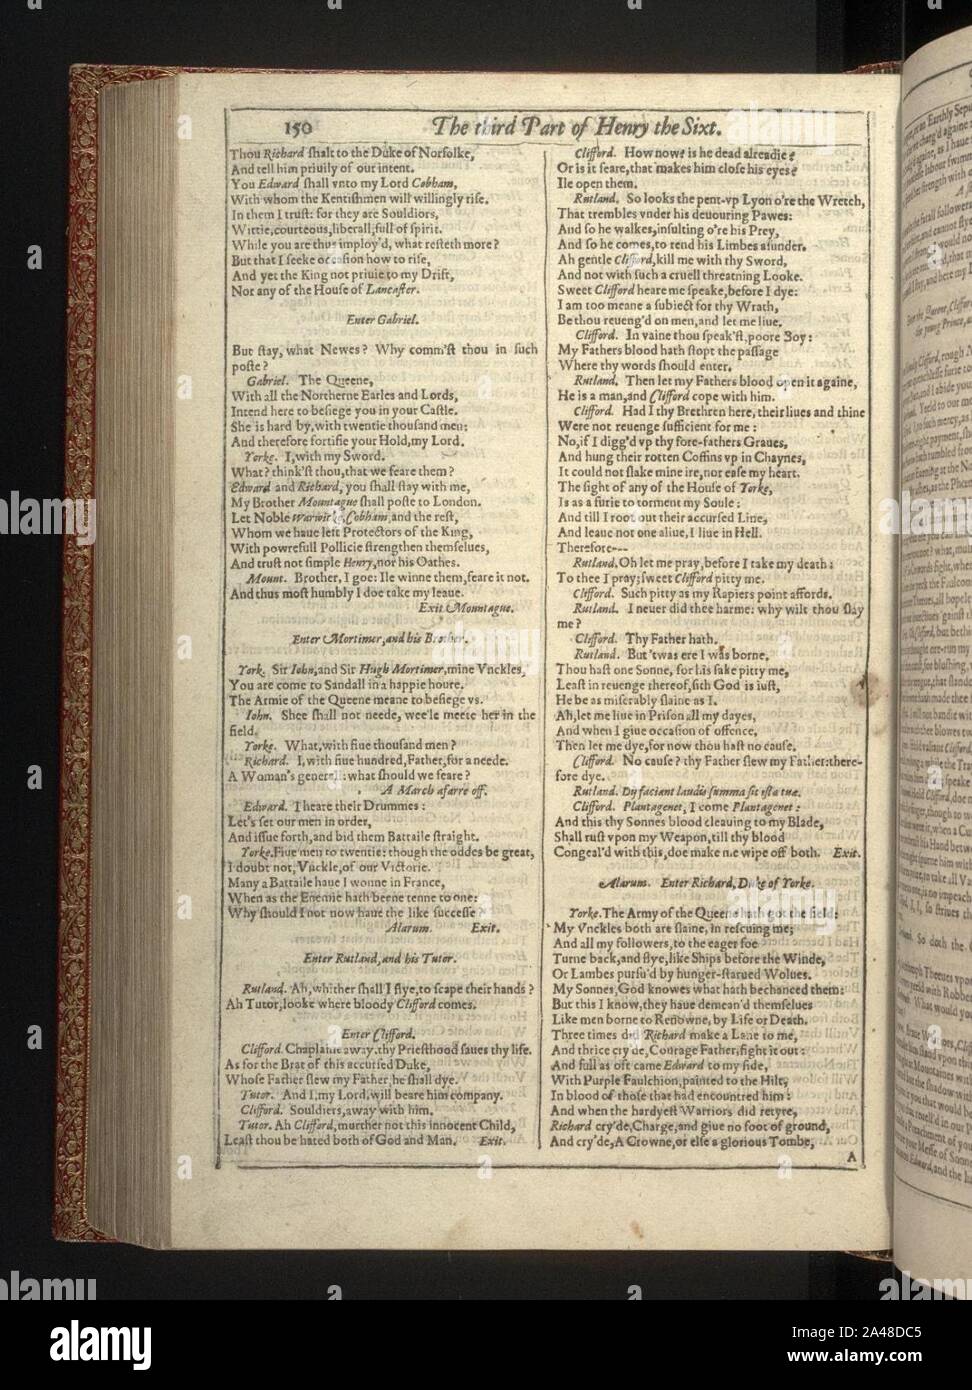 150
The third Part of Henry the Sixt.
Thou Richard ſhalt to the Duke of Norfolke,
And tell him priuily of our intent.
You Edward ſhall vnto my Lord Cobham,
With whom the Kentiſhmen will willingly riſe.
In them I truſt: for they are Souldiors,
Wittie, courteous, liberall, full of ſpirit.
While you are thus imploy'd, what reſteth more?
But that I ſeeke occaſion how to riſe,
And yet the King not priuie to my Drift,
Nor any of the Houſe of Lancaſter.
Enter Gabriel.
But ſtay, what Newes? Why comm'ſt thou in ſuch
poſte?
Gabriel. The Queene,
With all the Northerne Earles and Lords,
Intend here to beſiege you in your Caſtle.
She is hard by, with twentie thouſand men:
And therefore fortifie your Hold, my Lord.
Yorke. I, with my Sword.
What? think'ſt thou, that we feare them?
Edward and Richard, you ſhall ſtay with me,
My Brother Mountague ſhall poſte to London.
Let Noble Warwicke, Cobham, and the reſt,
Whom we haue left Protectors of the King,
With powrefull Pollicie ſtrengthen themſelues,
And truſt not ſimple Henry, nor his Oathes.
Mount. Brother, I goe: Ile winne them, feare it not.
And thus moſt humbly I doe take my leaue.
Exit Mountague.
Enter Mortimer, and his Brother.
York. Sir Iohn, and Sir Hugh Mortimer, mine Vnckles,
You are come to Sandall in a happie houre.
The Armie of the Queene meane to beſiege vs.
Iohn. Shee ſhall not neede, wee'le meete her in the
field.
Yorke. What, with fiue thouſand men?
Richard. I, with fiue hundred, Father, for a neede.
A Woman's generall: what ſhould we feare?
A March afarre off.
Edward. I heare their Drummes:
Let's ſet our men in order,
And iſſue forth, and bid them Battaile ſtraight.
Yorke. Fiue men to twentie: though the oddes be great,
I doubt not, Vnckle, of our Victorie.
Many a Battaile haue I wonne in France,
When as the Enemie hath beene tenne to one:
Why ſhould I not now haue the like ſucceſſe?
Alarum. Exit.
Enter Rutland, and his Tutor.
Rutland. Ah, whither ſhall I flye, to ſcape their hands?
Ah Tutor, looke where bloody Clifford comes.
Enter Clifford.
Clifford. Chaplaine away, thy Prieſthood ſaues thy life.
As for the Brat of this accurſed Duke,
Whoſe Father ſlew my Father, he ſhall dye.
Tutor. And I, my Lord, will beare him company.
Clifford. Souldiers, away with him.
Tutor. Ah Clifford, murther not this innocent Child,
Leaſt thou be hated both of God and Man. Exit.
Clifford. How now? is he dead alreadie?
Or is it feare, that makes him cloſe his eyes?
Ile open them.
Rutland. So looks the pent-vp Lyon o're the Wretch,
That trembles vnder his deuouring Pawes:
And ſo he walkes, inſulting o're his Prey,
And ſo he comes, to rend his Limbes aſunder.
Ah gentle Clifford, kill me with thy Sword,
And not with ſuch a cruell threatning Looke.
Sweet Clifford heare me ſpeake, before I dye:
I am too meane a ſubiect for thy Wrath,
Be thou reueng'd on men, and let me liue.
Clifford. In vaine thou ſpeak'ſt, poore Boy:
My Fathers blood hath ſtopt the paſſage
Where thy words ſhould enter.
Rutland. Then let my Fathers blood open it againe,
He is a man, and Clifford cope with him.
Clifford. Had I thy Brethren here, their liues and thine
Were not reuenge ſufficient for me:
No, if I digg'd vp thy fore-fathers Graues,
And hung their rotten Coffins vp in Chaynes,
It could not ſlake mine ire, nor eaſe my heart.
The ſight of any of the Houſe of Yorke,
Is as a furie to torment my Soule:
And till I root out their accurſed Line,
And leaue not one aliue, I liue in Hell.
Therefore---
Rutland. Oh let me pray, before I take my death:
To thee I pray; ſweet Clifford pitty me.
Clifford. Such pitty as my Rapiers point affords.
Rutland. I neuer did thee harme: why wilt thou ſlay
me?
Clifford. Thy Father hath.
Rutland. But 'twas ere I was borne.
Thou haſt one Sonne, for his ſake pitty me,
Leaſt in reuenge thereof, ſith God is iuſt,
He be as miſerably ſlaine as I.
Ah, let me liue in Priſon all my dayes,
And when I giue occaſion of offence,
Then let me dye, for now thou haſt no cauſe.
Clifford. No cauſe? thy Father ſlew my Father: there-
fore dye.
Rutland. Dij faciant laudis ſumma ſit iſta tuæ.
Clifford. Plantagenet, I come Plantagenet:
And this thy Sonnes blood cleauing to my Blade,
Shall ruſt vpon my Weapon, till thy blood
Congeal'd with this, doe make me wipe off both. Exit.
Alarum. Enter Richard, Duke of Yorke.
Yorke. The Army of the Queene hath got the field:
My Vnckles both are ſlaine, in reſcuing me;
And all my followers, to the eager foe
Turne back, and flye, like Ships before the Winde,
Or Lambes purſu'd by hunger-ſtarued Wolues.
My Sonnes, God knowes what hath bechanced them:
But this I know, they haue demean'd themſelues
Like men borne to Renowne, by Life or Death.
Three times did Richard make a Lane to me,
And thrice cry'de, Courage Father, fight it out:
And full as oft came Edward to my ſide,
With Purple Faulchion, painted to the Hilt,
In blood of thoſe that had encountred him:
And when the hardyeſt Warriors did retyre,
Richard cry'de, Charge, and giue no foot of ground,
And cry'de, A Crowne, or elſe a glorious Tombe,
A
alamy
Image ID: 2A48DC5
www.alamy.com